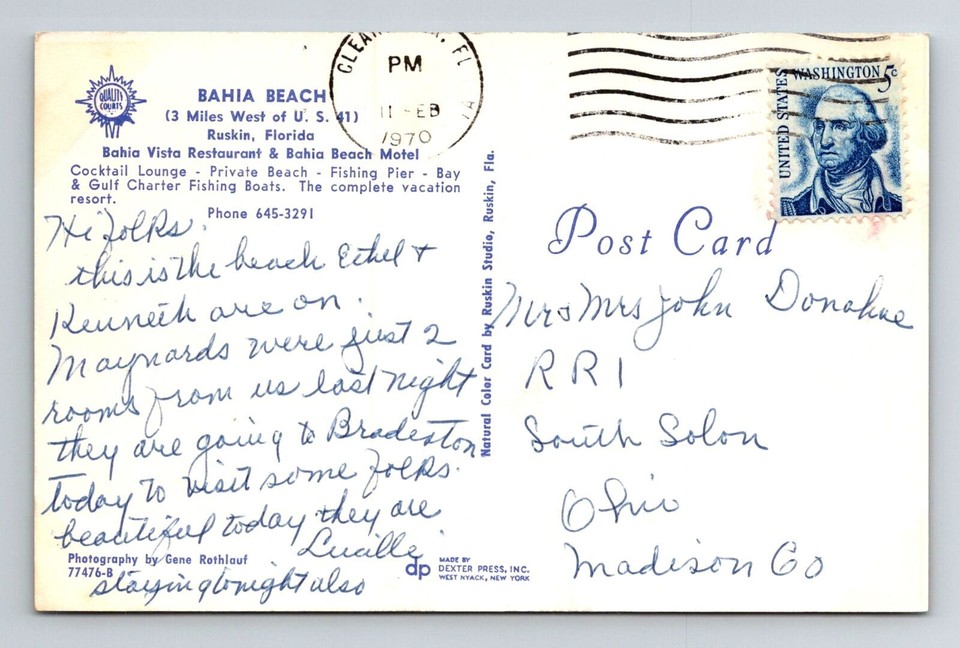 QUALITY COURTS
BAHIA BEACH
(3 Miles West of U. S. 41)
Ruskin, Florida
Bahia Vista Restaurant & Bahia Beach Motel
Cocktail Lounge - Private Beach - Fishing Pier - Bay
& Gulf Charter Fishing Boats. The complete vacation
resort.
Phone 645-3291
Hi folks.
this is the beach Ethel +
Kenneth are on.
Maynards were just 2
rooms from us last night
they are going to Bradeston
today to visit some folks.
beautiful today they are
Lucille
staying tonight also
Photography by Gene Rothlauf
77476-B
Natural Color Card by Ruskin Studio, Ruskin, Fla.
dp
MADE BY
DEXTER PRESS, INC.
WEST NYACK, NEW YORK
FL
PM
11 EB
1970
UNITED STATES
WASHINGTON 5c
Post Card
Mr & Mrs John Donahue
RR 1
South Solon
Ohio
Madison Co